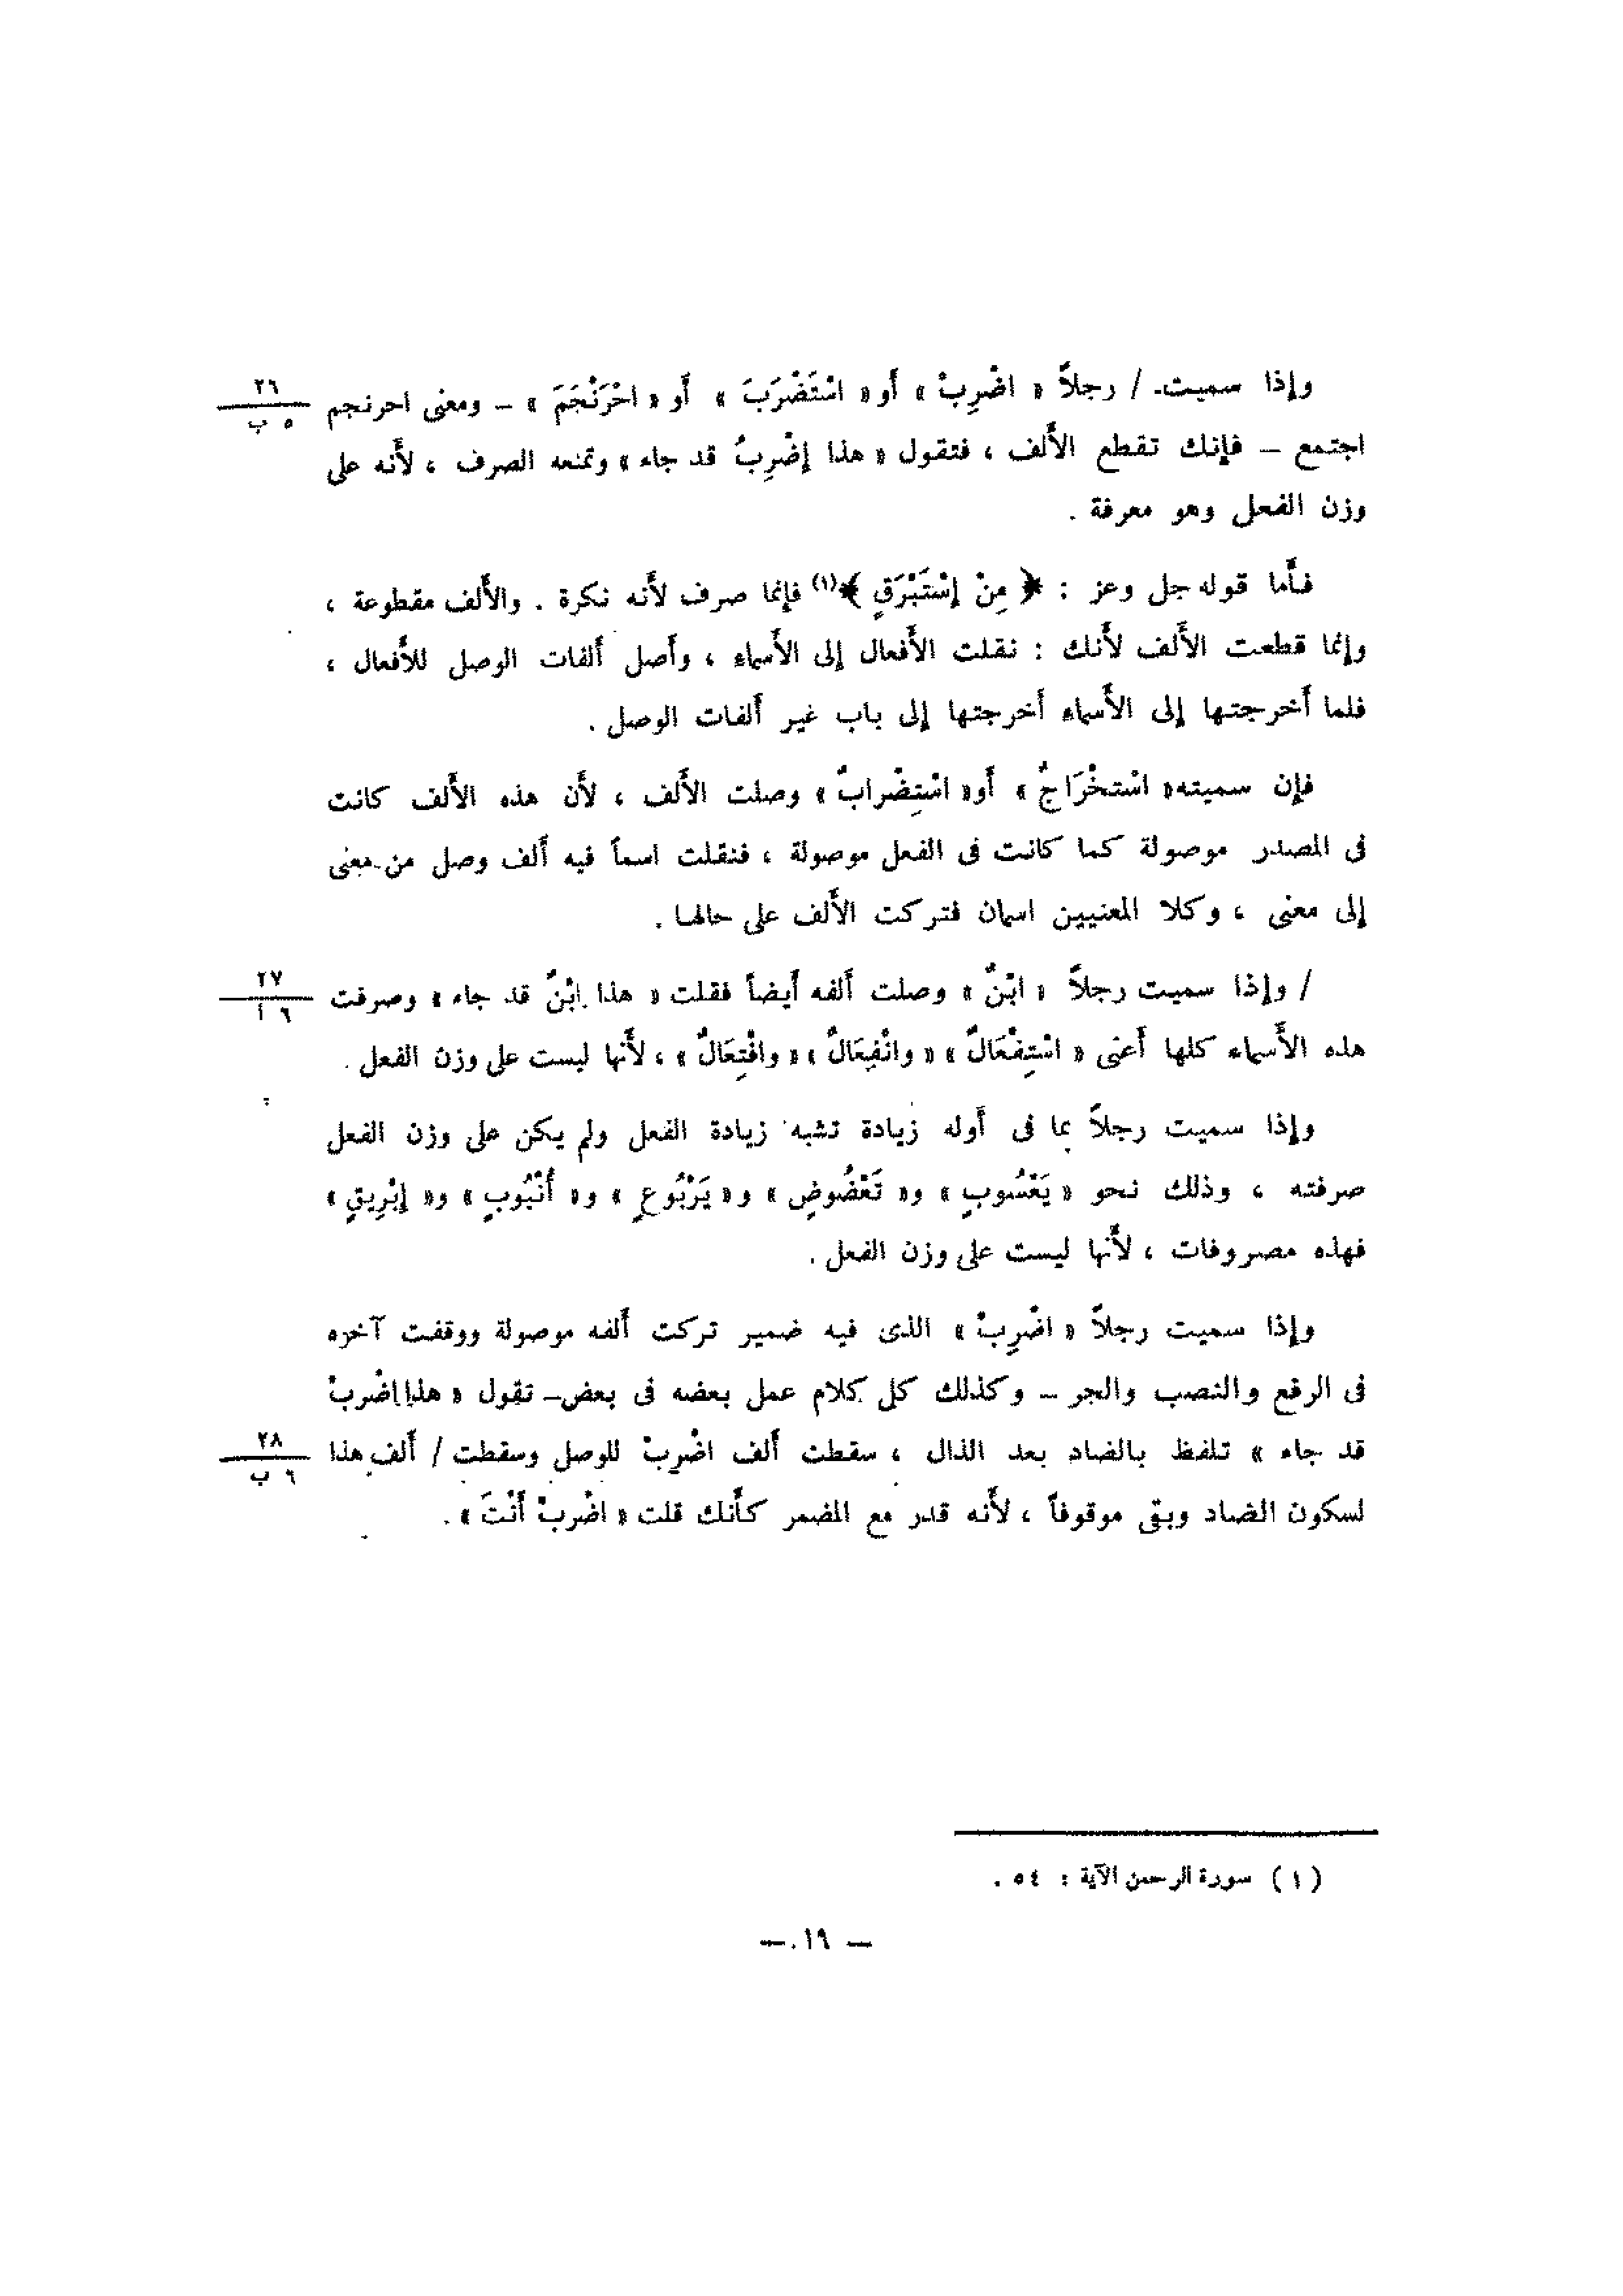 وإذا سميت / رجلاً « اضْرِبْ » أو « اسْتَضْرَبَ » أو « احْرَنْجَمَ » – ومعنى احرنجم
٢٦
٥ ب
اجتمع – فإنك تقطع الألف ، فتقول « هذا إضْرِبُ قد جاء » وتمنعه الصرف ، لأنه على
وزن الفعل وهو معرفة .
فأما قوله جل وعز : ﴿ مِنْ إسْتَبْرَقٍ ﴾(١) فإنما صرف لأنه نكرة . والألف مقطوعة ،
وإنما قطعت الألف لأنك : نقلت الأفعال إلى الأسماء ، وأصل ألفات الوصل للأفعال ،
فلما أخرجتها إلى الأسماء أخرجتها إلى باب غير ألفات الوصل .
فإن سميته « اسْتخْرَاجٌ » أو « اسْتِضْرابٌ » وصلت الألف ، لأن هذه الألف كانت
فى المصدر موصولة كما كانت فى الفعل موصولة ، فنقلت اسماً فيه ألف وصل من معنى
إلى معنى ، وكلا المعنيين اسمان فتركت الألف على حالها .
/ وإذا سميت رجلاً « ابْنٌ » وصلت ألفه أيضاً فقلت « هذا ابْنٌ قد جاء » وصرفت
٢٧
٦ أ
هذه الأسماء كلها أعنى « اسْتِفْعَالٌ » « وانْفِعَالٌ » « وافْتِعَالٌ » ، لأنها ليست على وزن الفعل .
وإذا سميت رجلاً بما فى أوله زيادة تشبه زيادة الفعل ولم يكن على وزن الفعل
صرفته ، وذلك نحو « يَعْسُوبٍ » و« تَعْضُوضٍ » و« يَرْبُوعٍ » و« أُنْبُوبٍ » و« إبْرِيقٍ »
فهذه مصروفات ، لأنها ليست على وزن الفعل .
وإذا سميت رجلاً « اضْرِبْ » الذى فيه ضمير تركت ألفه موصولة ووقفت آخره
فى الرفع والنصب والجر – وكذلك كل كلام عمل بعضه فى بعض – تقول « هذا اضْرِبْ
قد جاء » تلفظ بالضاد بعد الذال ، سقطت ألف اضْرِبْ للوصل وسقطت / ألف هذا
٢٨
٦ ب
لسكون الضاد وبقى موقوفاً ، لأنه قدر مع المضمر كأنك قلت « اضْرِبْ أَنْتَ » .
(١) سورة الرحمن الآية : ٥٤ .
– ١٩ –